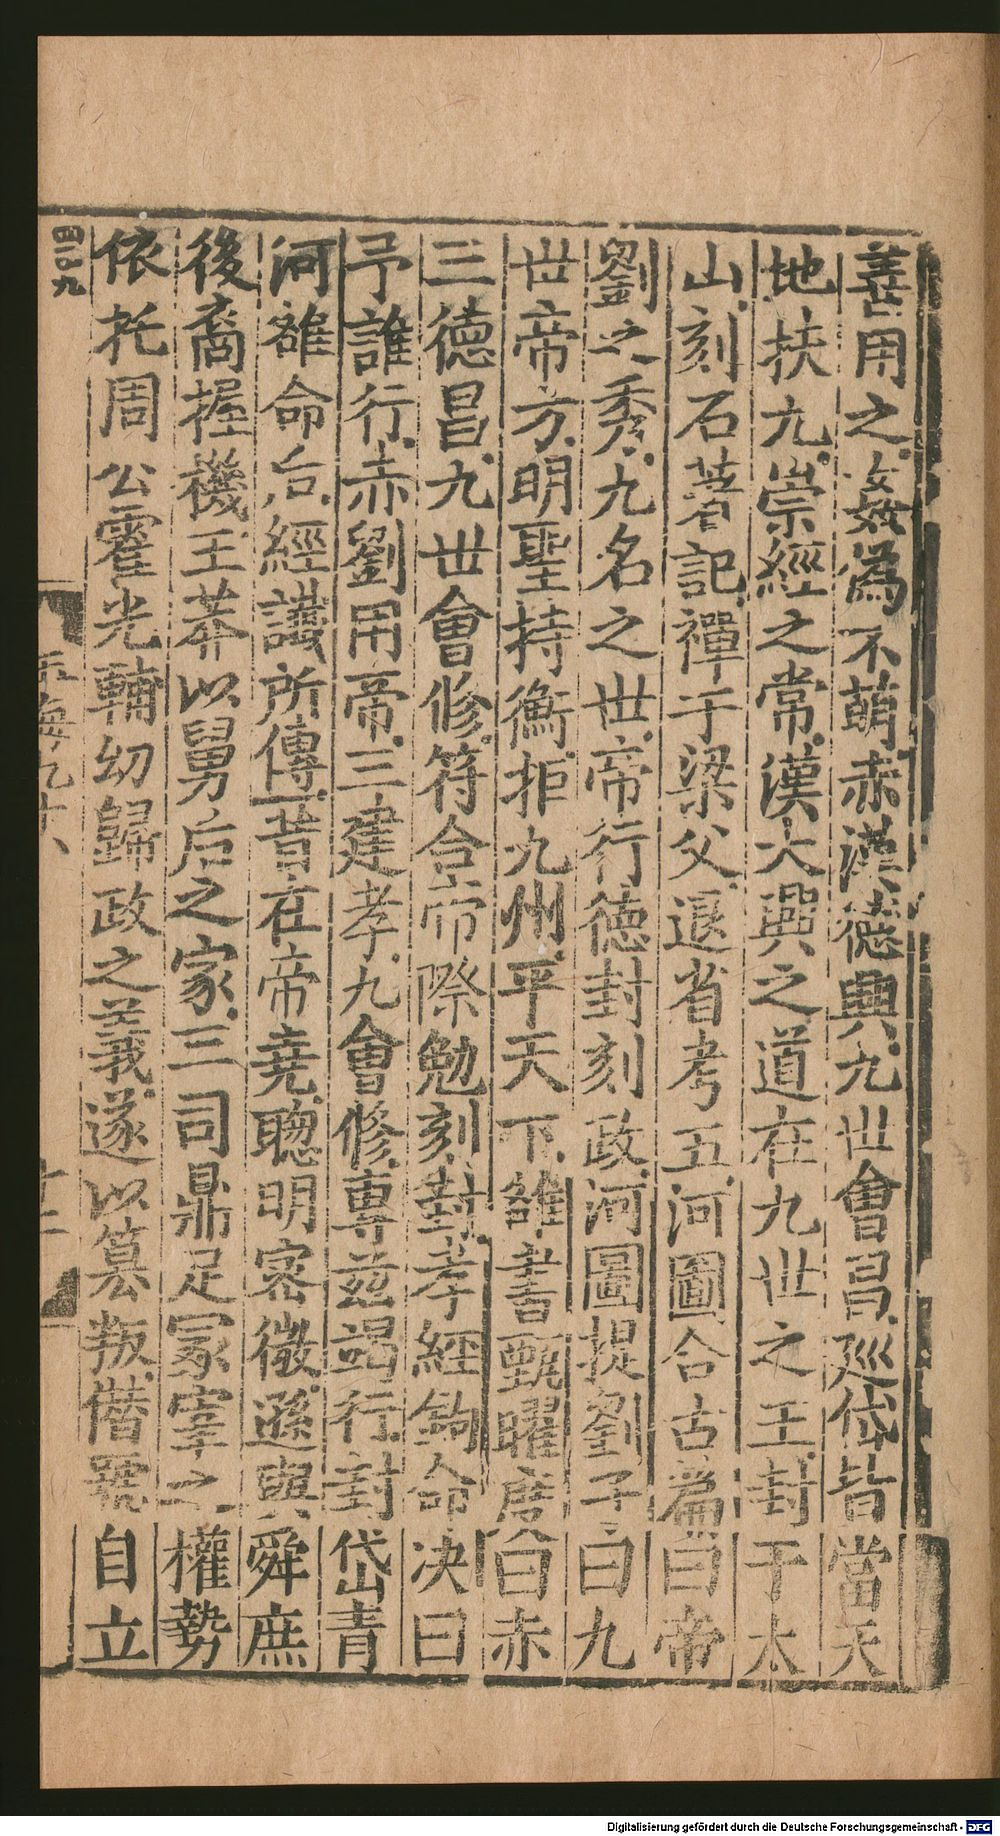 善用之姦偽不萌赤漢德興九世會昌廵岱皆當天
地扶九崇經之常漢大興之道在九世之王封于太
山刻石著記禪于梁父退省考五河圖合古篇曰帝
劉之秀九名之世帝行德封刻政河圖提劉子曰九
世帝方明聖持衡拒九州平天下雒書甄曜度曰赤
三德昌九世會修符合帝際勉刻封孝經鉤命决曰
予誰行赤劉用帝三建孝九會修專兹竭行封岱青
河雒命后經讖所傳昔在帝堯聰明宻微遜與舜庶
後裔握機王莽以舅后之家三司鼎足冡宰之權勢
依托周公霍光輔幼歸政之義遂以篡叛僣號自立
四二〇九
玉海九十八
十二
Digitalisierung gefördert durch die Deutsche Forschungsgemeinschaft - DFG